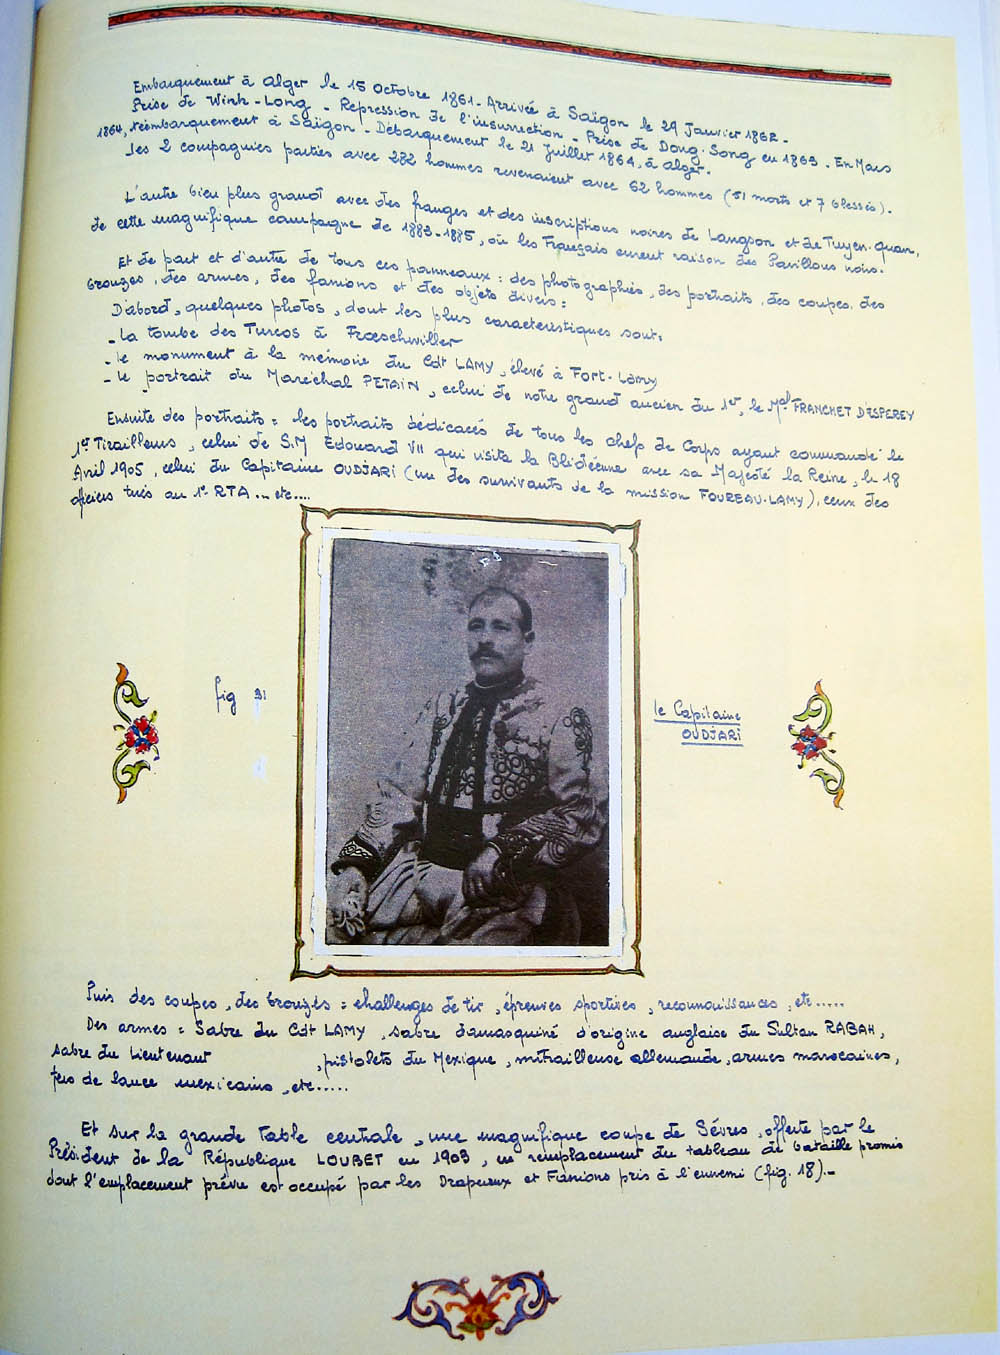 Embarquement à Alger le 15 Octobre 1861. Arrivée à Saïgon le 29 Janvier 1862.
Prise de Winh-Long - Repression de l'insurrection - Prise de Dong-Song en 1863. En Mars
1864, réembarquement à Saïgon - Débarquement le 21 Juillet 1864, à Alger.
Les 2 compagnies parties avec 282 hommes revenaient avec 62 hommes (51 morts et 7 blessés).
L'autre bien plus grand avec des franges et des inscriptions noires de Langson et de Tuyen-quan,
de cette magnifique campagne de 1883-1885, où les Français eurent raison des Pavillons noirs.
Et de part et d'autre de tous ces panneaux : des photographies, des portraits, des coupes, des
bronzes, des armes, des fanions et des objets divers :
D'abord, quelques photos, dont les plus caractéristiques sont,
- La tombe des Turcos à Frœschwiller
- Le monument à la mémoire du Cdt LAMY, élevé à Fort-Lamy
- Le portrait du Maréchal PETAIN, celui de notre grand ancien du 1er, le Mal FRANCHET D'ESPEREY
Ensuite des portraits : les portraits dédicacés de tous les chefs de Corps ayant commandé le
1er Tirailleurs, celui de S.M Edouard VII qui visita la Blidéenne avec sa Majesté la Reine, le 18
Avril 1905, celui du Capitaine OUDJARI (un des survivants de la mission FOUREAU-LAMY), ceux des
officiers tués au 1er RTA... etc....
fig 31
le Capitaine
OUDJARI
Puis des coupes, des bronzes : challenges de tir, épreuves sportives, reconnaissances, etc.....
Des armes : Sabre du Cdt LAMY, sabre damasquiné d'origine anglaise du Sultan RABAH,
sabre du Lieutenant , pistolets du Mexique, mitrailleuse allemande, armes marocaines,
fers de lance mexicains, etc.....
Et sur la grande Table centrale, une magnifique coupe de Sèvres, offerte par le
Président de la République LOUBET en 1903, en remplacement du tableau de bataille promis
dont l'emplacement prévu est occupé par les Drapeaux et Fanions pris à l'ennemi (fig. 18).-